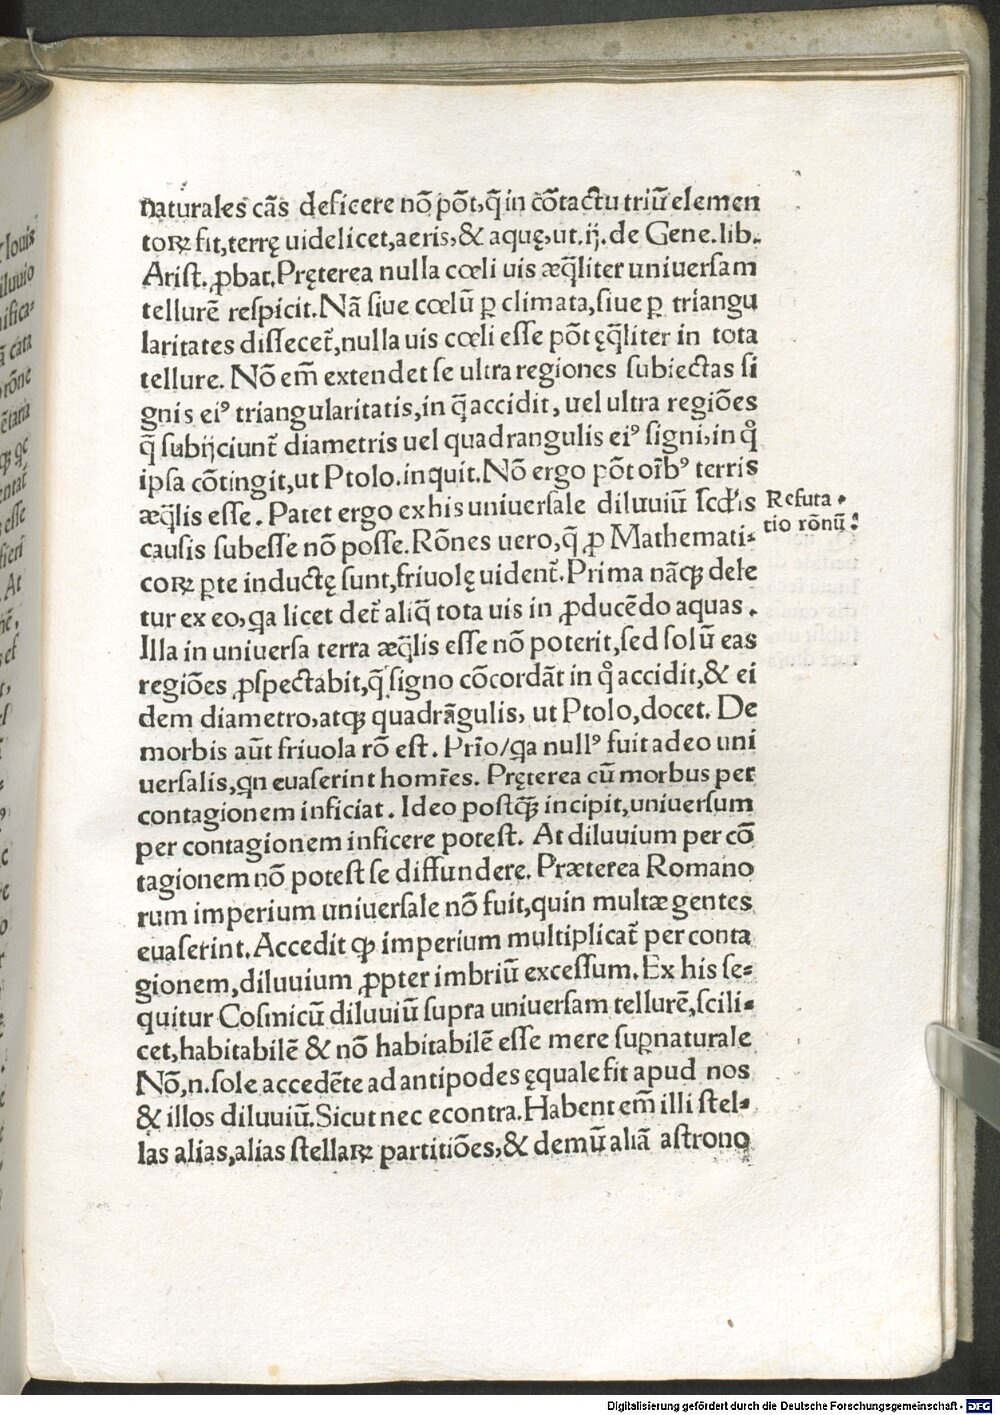 naturales cãs deficere nõ põt, q̃ in cõtactu triũ elemen
torꝝ fit, terrę uidelicet, aeris, & aquę, ut. ij. de Gene. lib.
Arist. ꝓbat. Pręterea nulla cœli uis æq̃liter uniuersam
tellurẽ respicit. Nã siue cœlũ ꝑ climata, siue ꝑ triangu
laritates dissecet̃, nulla uis cœli esse põt ęq̃liter in tota
tellure. Nõ em̃ extendet se ultra regiones subiectas si
gnis eiꝰ triangularitatis, in q̃ accidit, uel ultra regiões
q̃ subijciunt̃ diametris uel quadrangulis eiꝰ signi, in qͦ
ipsa cõtingit, ut Ptolo. inquit. Nõ ergo põt oĩbꝰ terris
æq̃lis esse. Patet ergo ex his uniuersale diluuiũ scđis
causis subesse nõ posse. Rões uero, q̃ ꝓ Mathemati⸗
corꝝ ꝑte inductę sunt, friuolę uident̃. Prima nãqꝫ dele
tur ex eo, ꝗa licet det̃ aliq̃ tota uis in ꝓducẽdo aquas.
Illa in uniuersa terra æq̃lis esse nõ poterit, sed solũ eas
regiões ꝓspectabit, q̃ signo cõcordãt in qͦ accidit, & ei
dem diametro, atqꝫ quadrãgulis, ut Ptolo, docet. De
morbis aũt friuola rõ est. Prĩo/ꝗa nullꝰ fuit adeo uni
uersalis, ꝗn euaserint homĩes. Pręterea cũ morbus per
contagionem inficiat. Ideo postq̃ꝫ incipit, uniuersum
per contagionem inficere potest. At diluuium per cõ
tagionem nõ potest se diffundere. Præterea Romano
rum imperium uniuersale nõ fuit, quin multæ gentes
euaserint. Accedit ꝙ imperium multiplicat̃ per conta
gionem, diluuium ꝓpter imbriũ excessum. Ex his se⸗
quitur Cosmicũ diluuiũ supra uniuersam tellurẽ, scili⸗
cet, habitabilẽ & nõ habitabilẽ esse mere suꝑnaturale
Nõ, n. sole accedẽte ad antipodes ęquale fit apud nos
& illos diluuiũ. Sicut nec econtra. Habent em̃ illi stel⸗
las alias, alias stellarꝝ partitiões, & demũ aliã astrono
Refuta⸗
tio rõnũ:
Digitalisierung gefördert durch die Deutsche Forschungsgemeinschaft - DFG